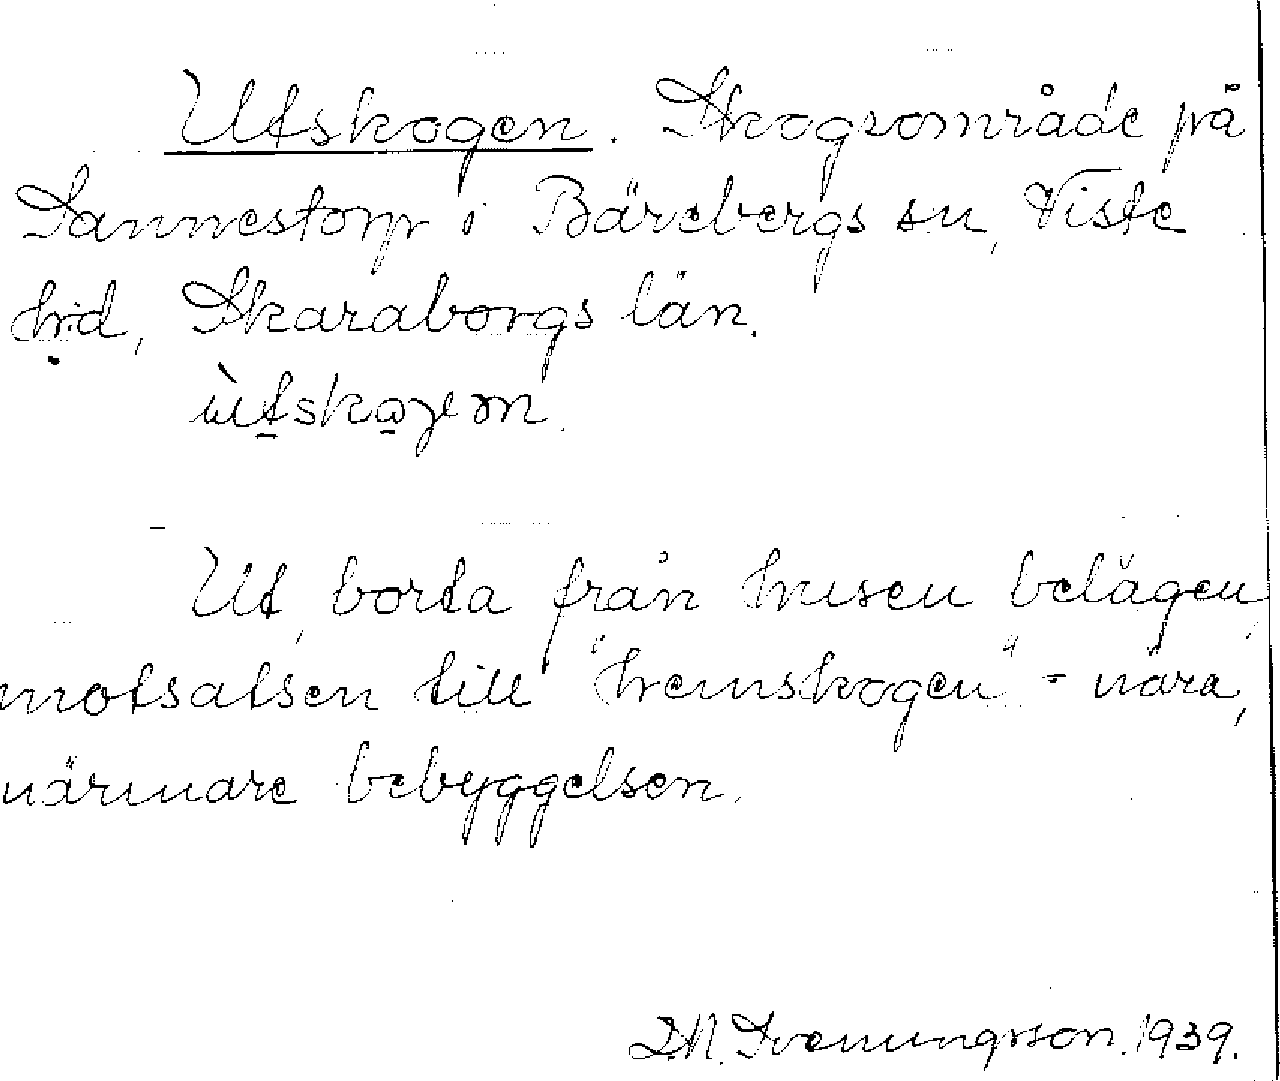 Utskogen. Skogsområde på
Sannestorp i Bärebergs sn, Viste
hd, Skaraborgs län.
ùtskoγen.
Ut, borta från husen belägen,
motsatsen till "hemskogen" - nära,
närmare bebyggelsen.
D.N. Svenungsson. 1939.